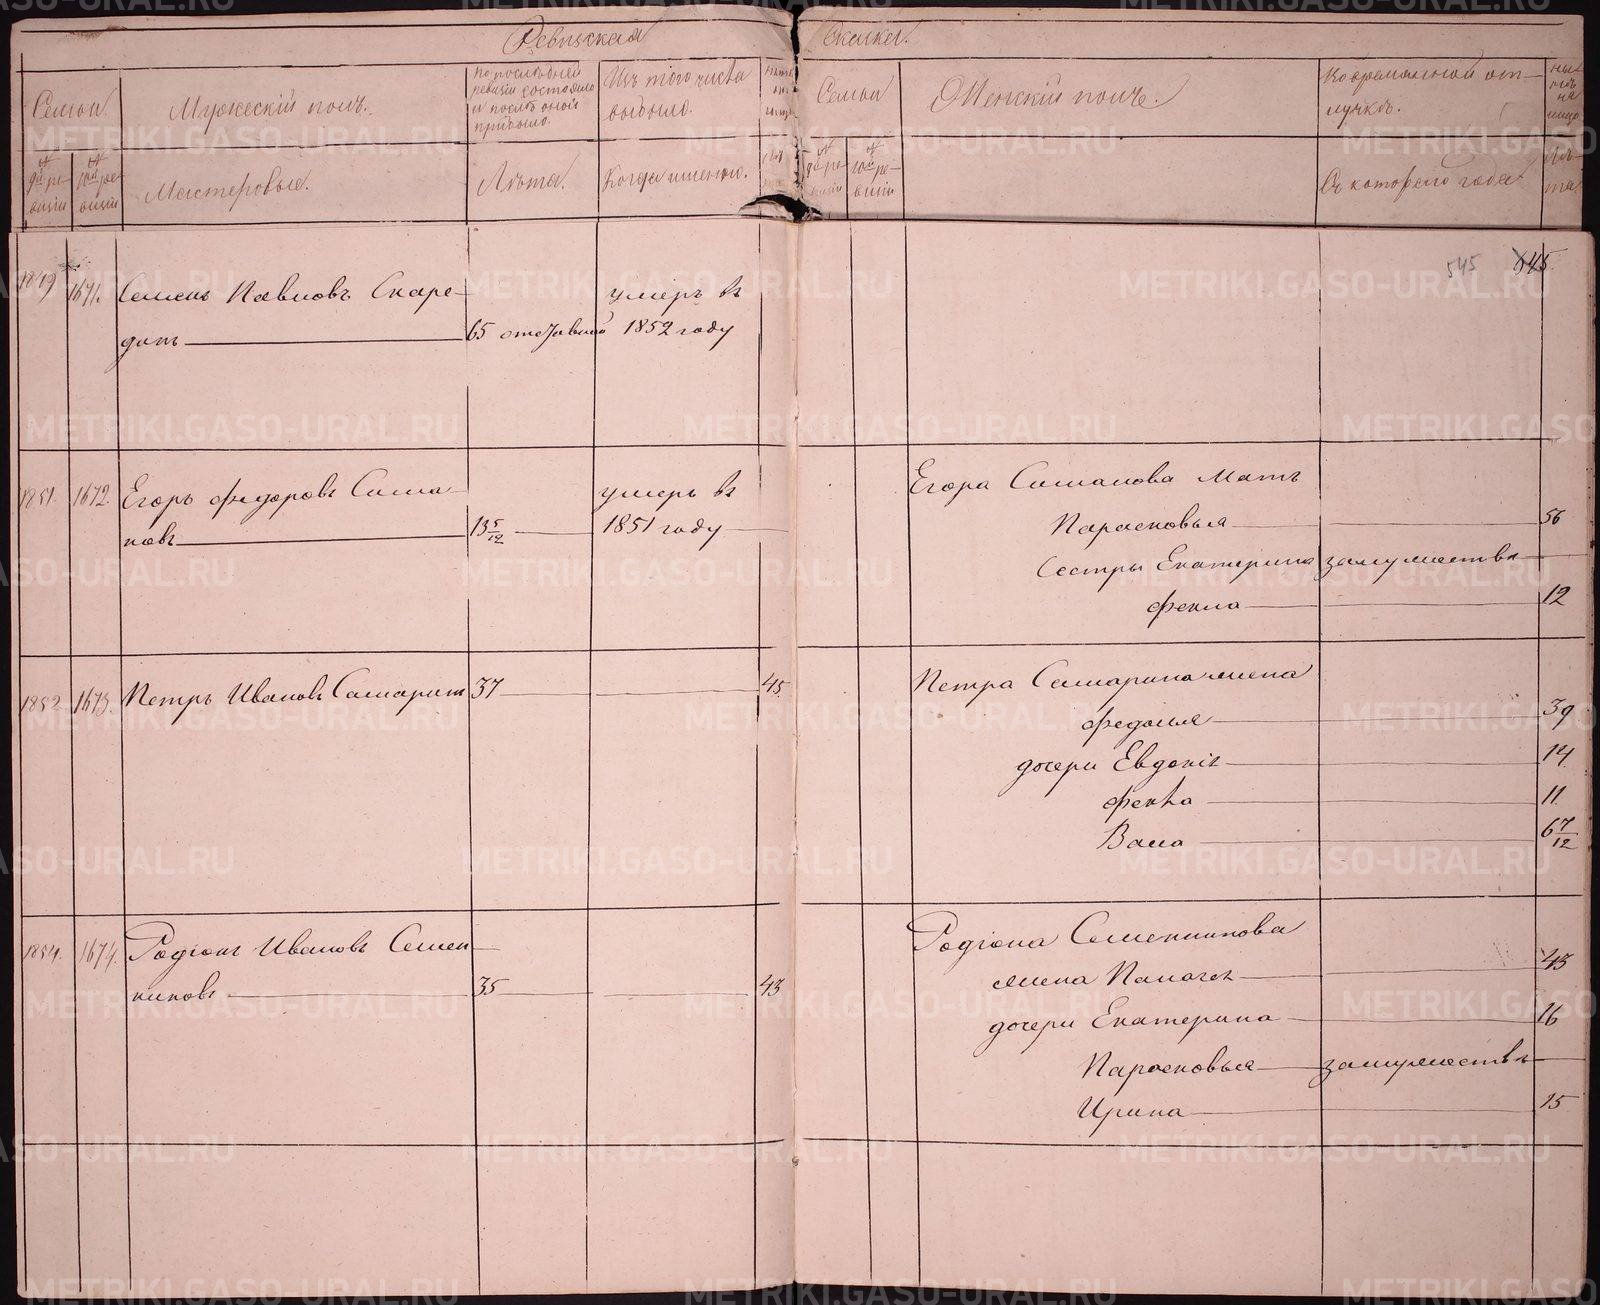 Ревизская Сказка.
Семьи
Мужескій полъ.
По последней
ревизіи состояло
и после оной
прибыло
Изъ того числа
выбыло.
Семьи
Женскій полъ.
Во временной от-
лучке.
№
9й ре-
визіи
№
10й ре-
визіи
Мастеровые.
Лѣта.
Когда именно.
№
9й ре-
визіи
№
10й ре-
визіи
Съ котораго года
Лѣ-
та
545 545
1849 1671. Семенъ Павловъ Скаре-
датъ 65 отставной
умеръ въ
1852 году
1851. 1672. Егоръ Федоровъ Сима-
новъ 13 5/12
умеръ въ
1851 году
Егора Симанова мать
Парасковья 56
Сестры Екатерина замужествѣ
Фекла 12
1852 1673. Петръ Ивановъ Самаринъ 37 45
Петра Самарина жена
Федосья 39
дочери Евдокія 14
Фекла 11
Васа 6 7/12
1854. 1674. Родіонъ Ивановъ Семен-
никовъ 35 43
Родіона Семенникова
жена Палагея 43
дочери Екатерина 16
Парасковья замужествѣ
Ирина 15
METRIKI.GASO-URAL.RU